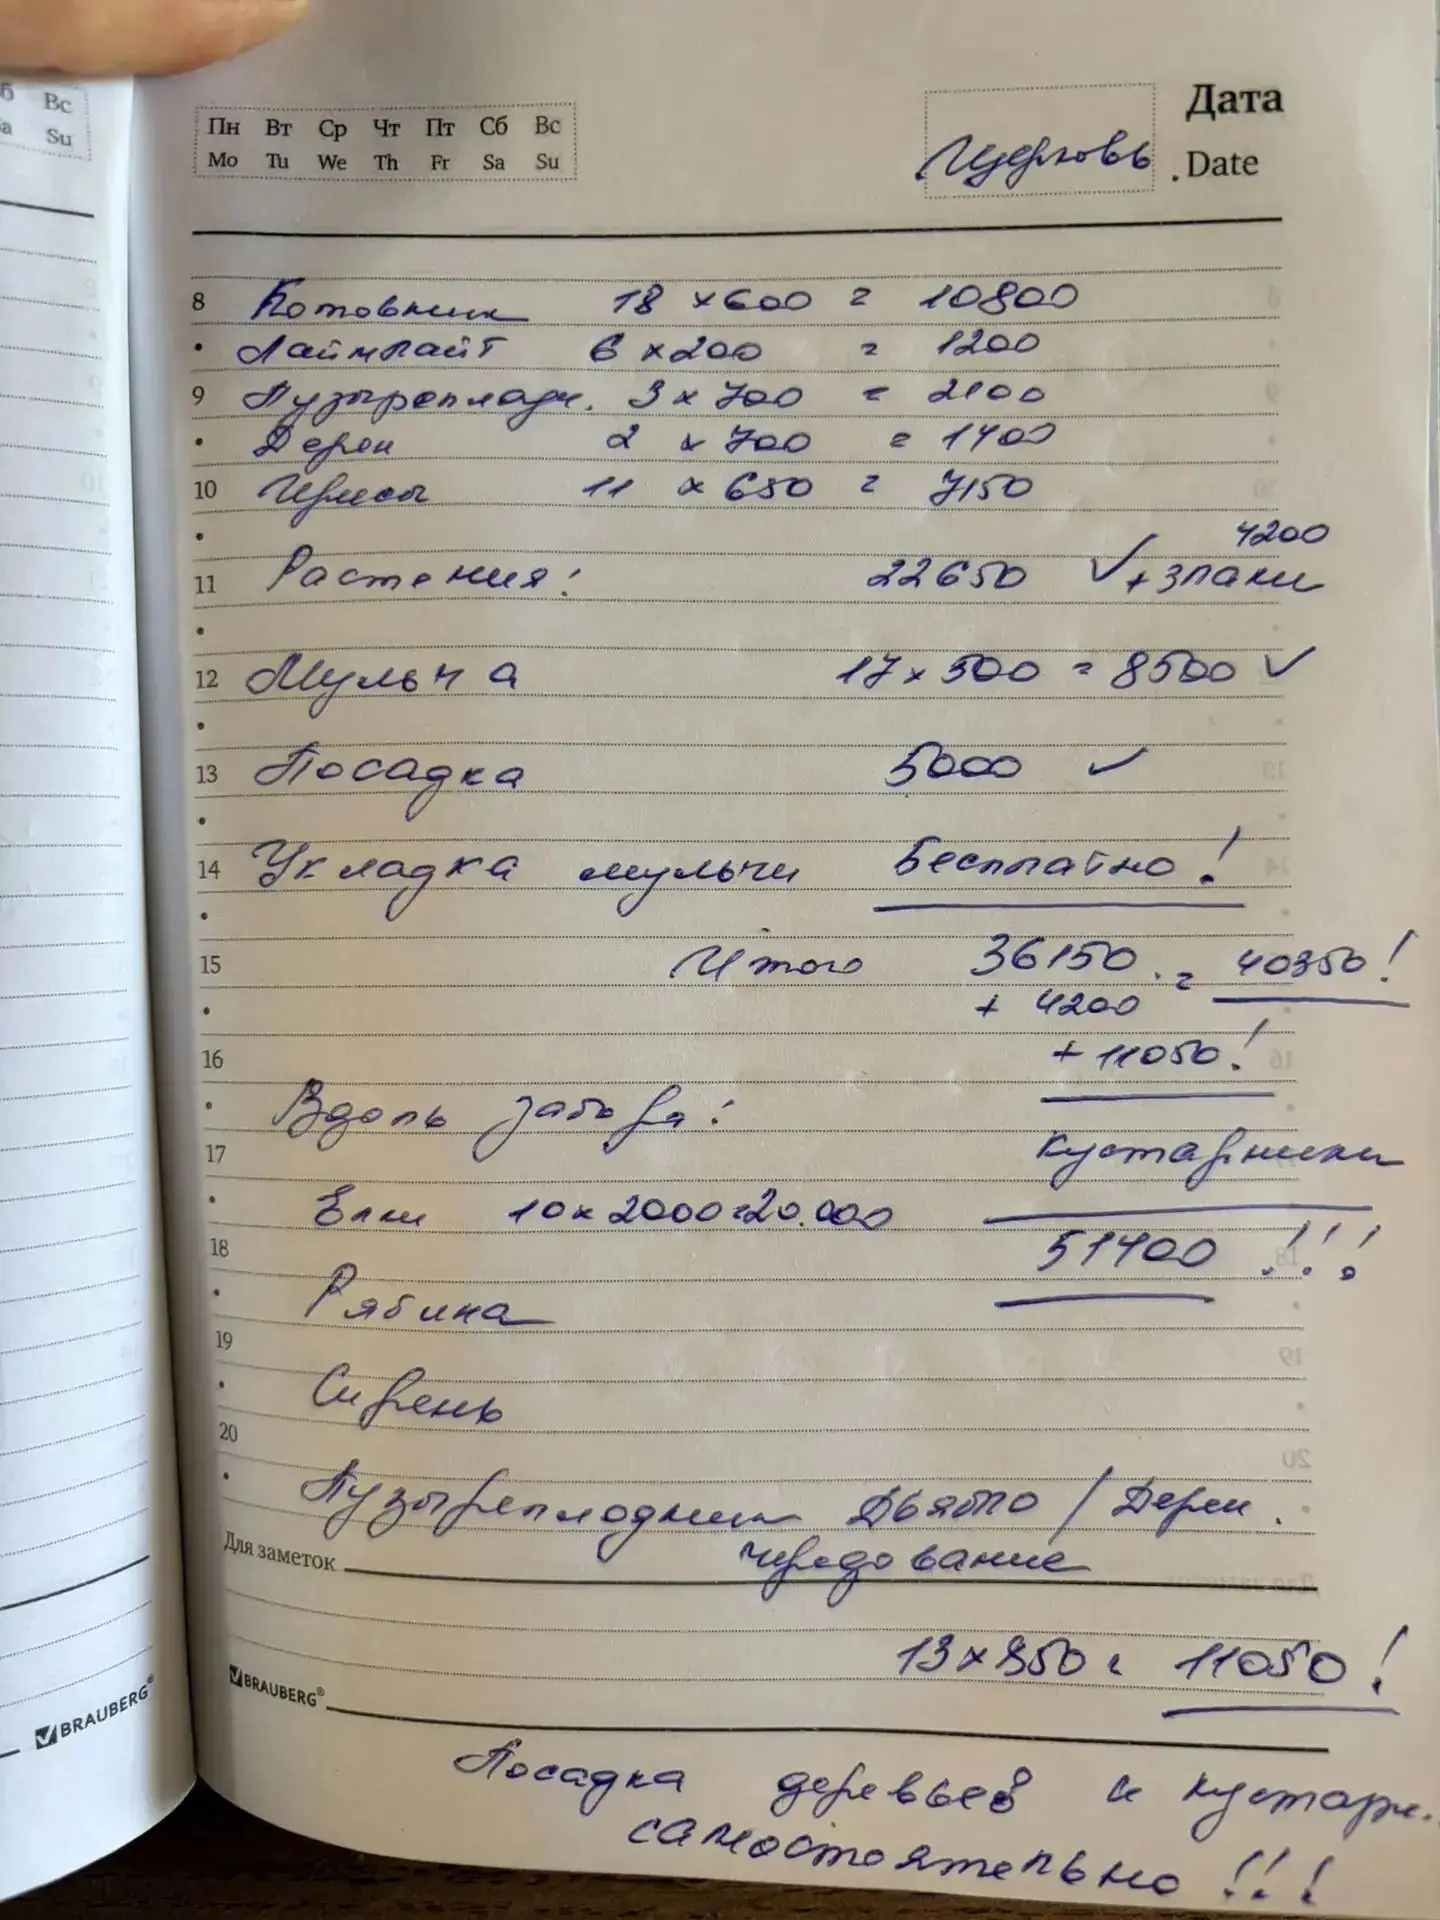 б Вс
а Su
Пн Вт Ср Чт Пт Сб Вс
Mo Tu We Th Fr Sa Su
Дата
Церковь . Date
8 Котовник 18 × 600 = 10800
Лаймлайт 6 × 200 = 1200
9 Пузыреплодн. 3 × 700 = 2100
Дерен 2 × 700 = 1400
10 Ирисы 11 × 650 = 7150
4200
11 Растения: 22650 ✓ + злаки
12 Мульча 17 × 500 = 8500 ✓
13 Посадка 5000 ✓
14 Укладка мульчи Бесплатно!
15 Итого 36150 = 40350!
+ 4200
16 + 11050!
Вдоль забора:
17 кустарники
Елки 10 × 2000 = 20.000
18 51400 !!!
Рябина
19
Сирень
20
Пузыреплодник Дьябло / Дерен.
Для заметок чередование
13 × 850 = 11050!
BRAUBERG®
BRAUBERG®
Посадка деревьев и кустарн.
самостоятельно!!!